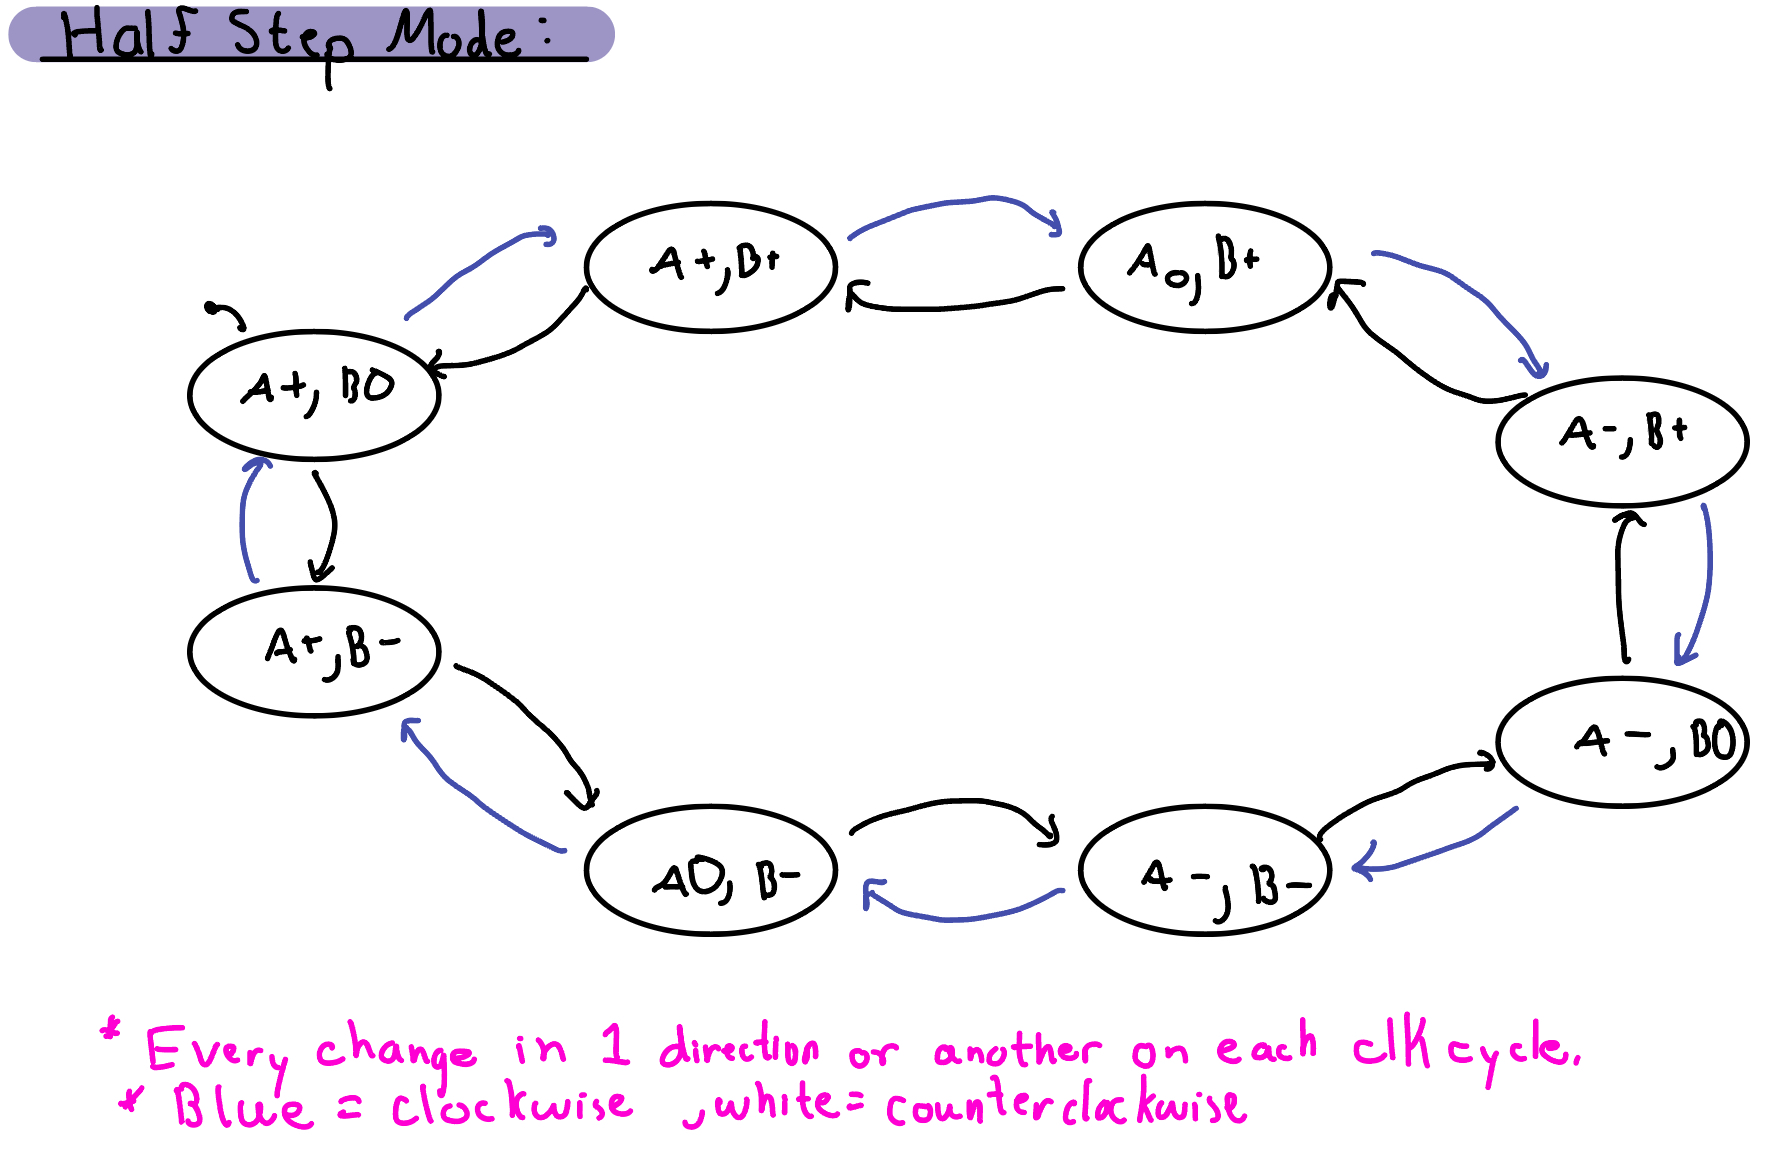 Half Step Mode:
A+,B+
A0,B+
A+,B0
A-,B+
A+,B-
A-,B0
A0,B-
A-,B-
* Every change in 1 direction or another on each clk cycle.
* Blue = clockwise , white = counterclockwise